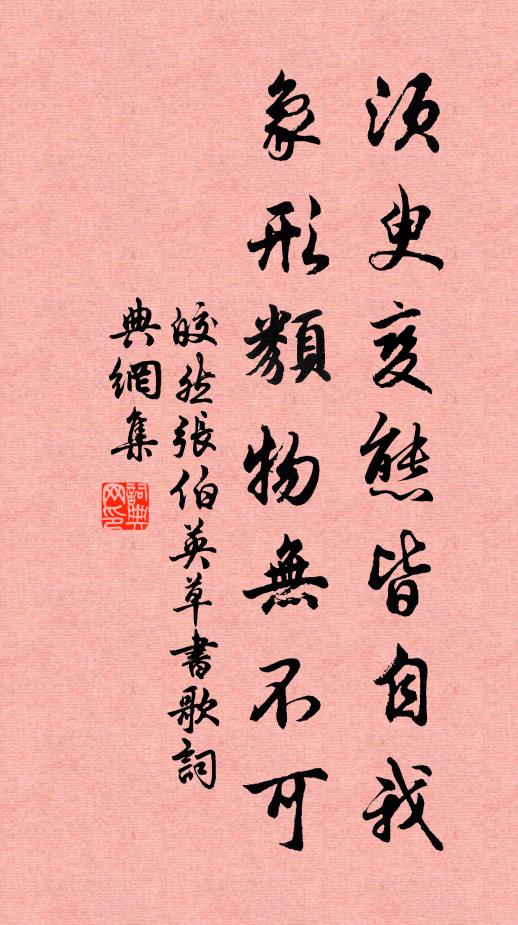 须臾变態皆自我
象形類物無不可
皎然張伯英草書歌詞
典網集
詞典网印